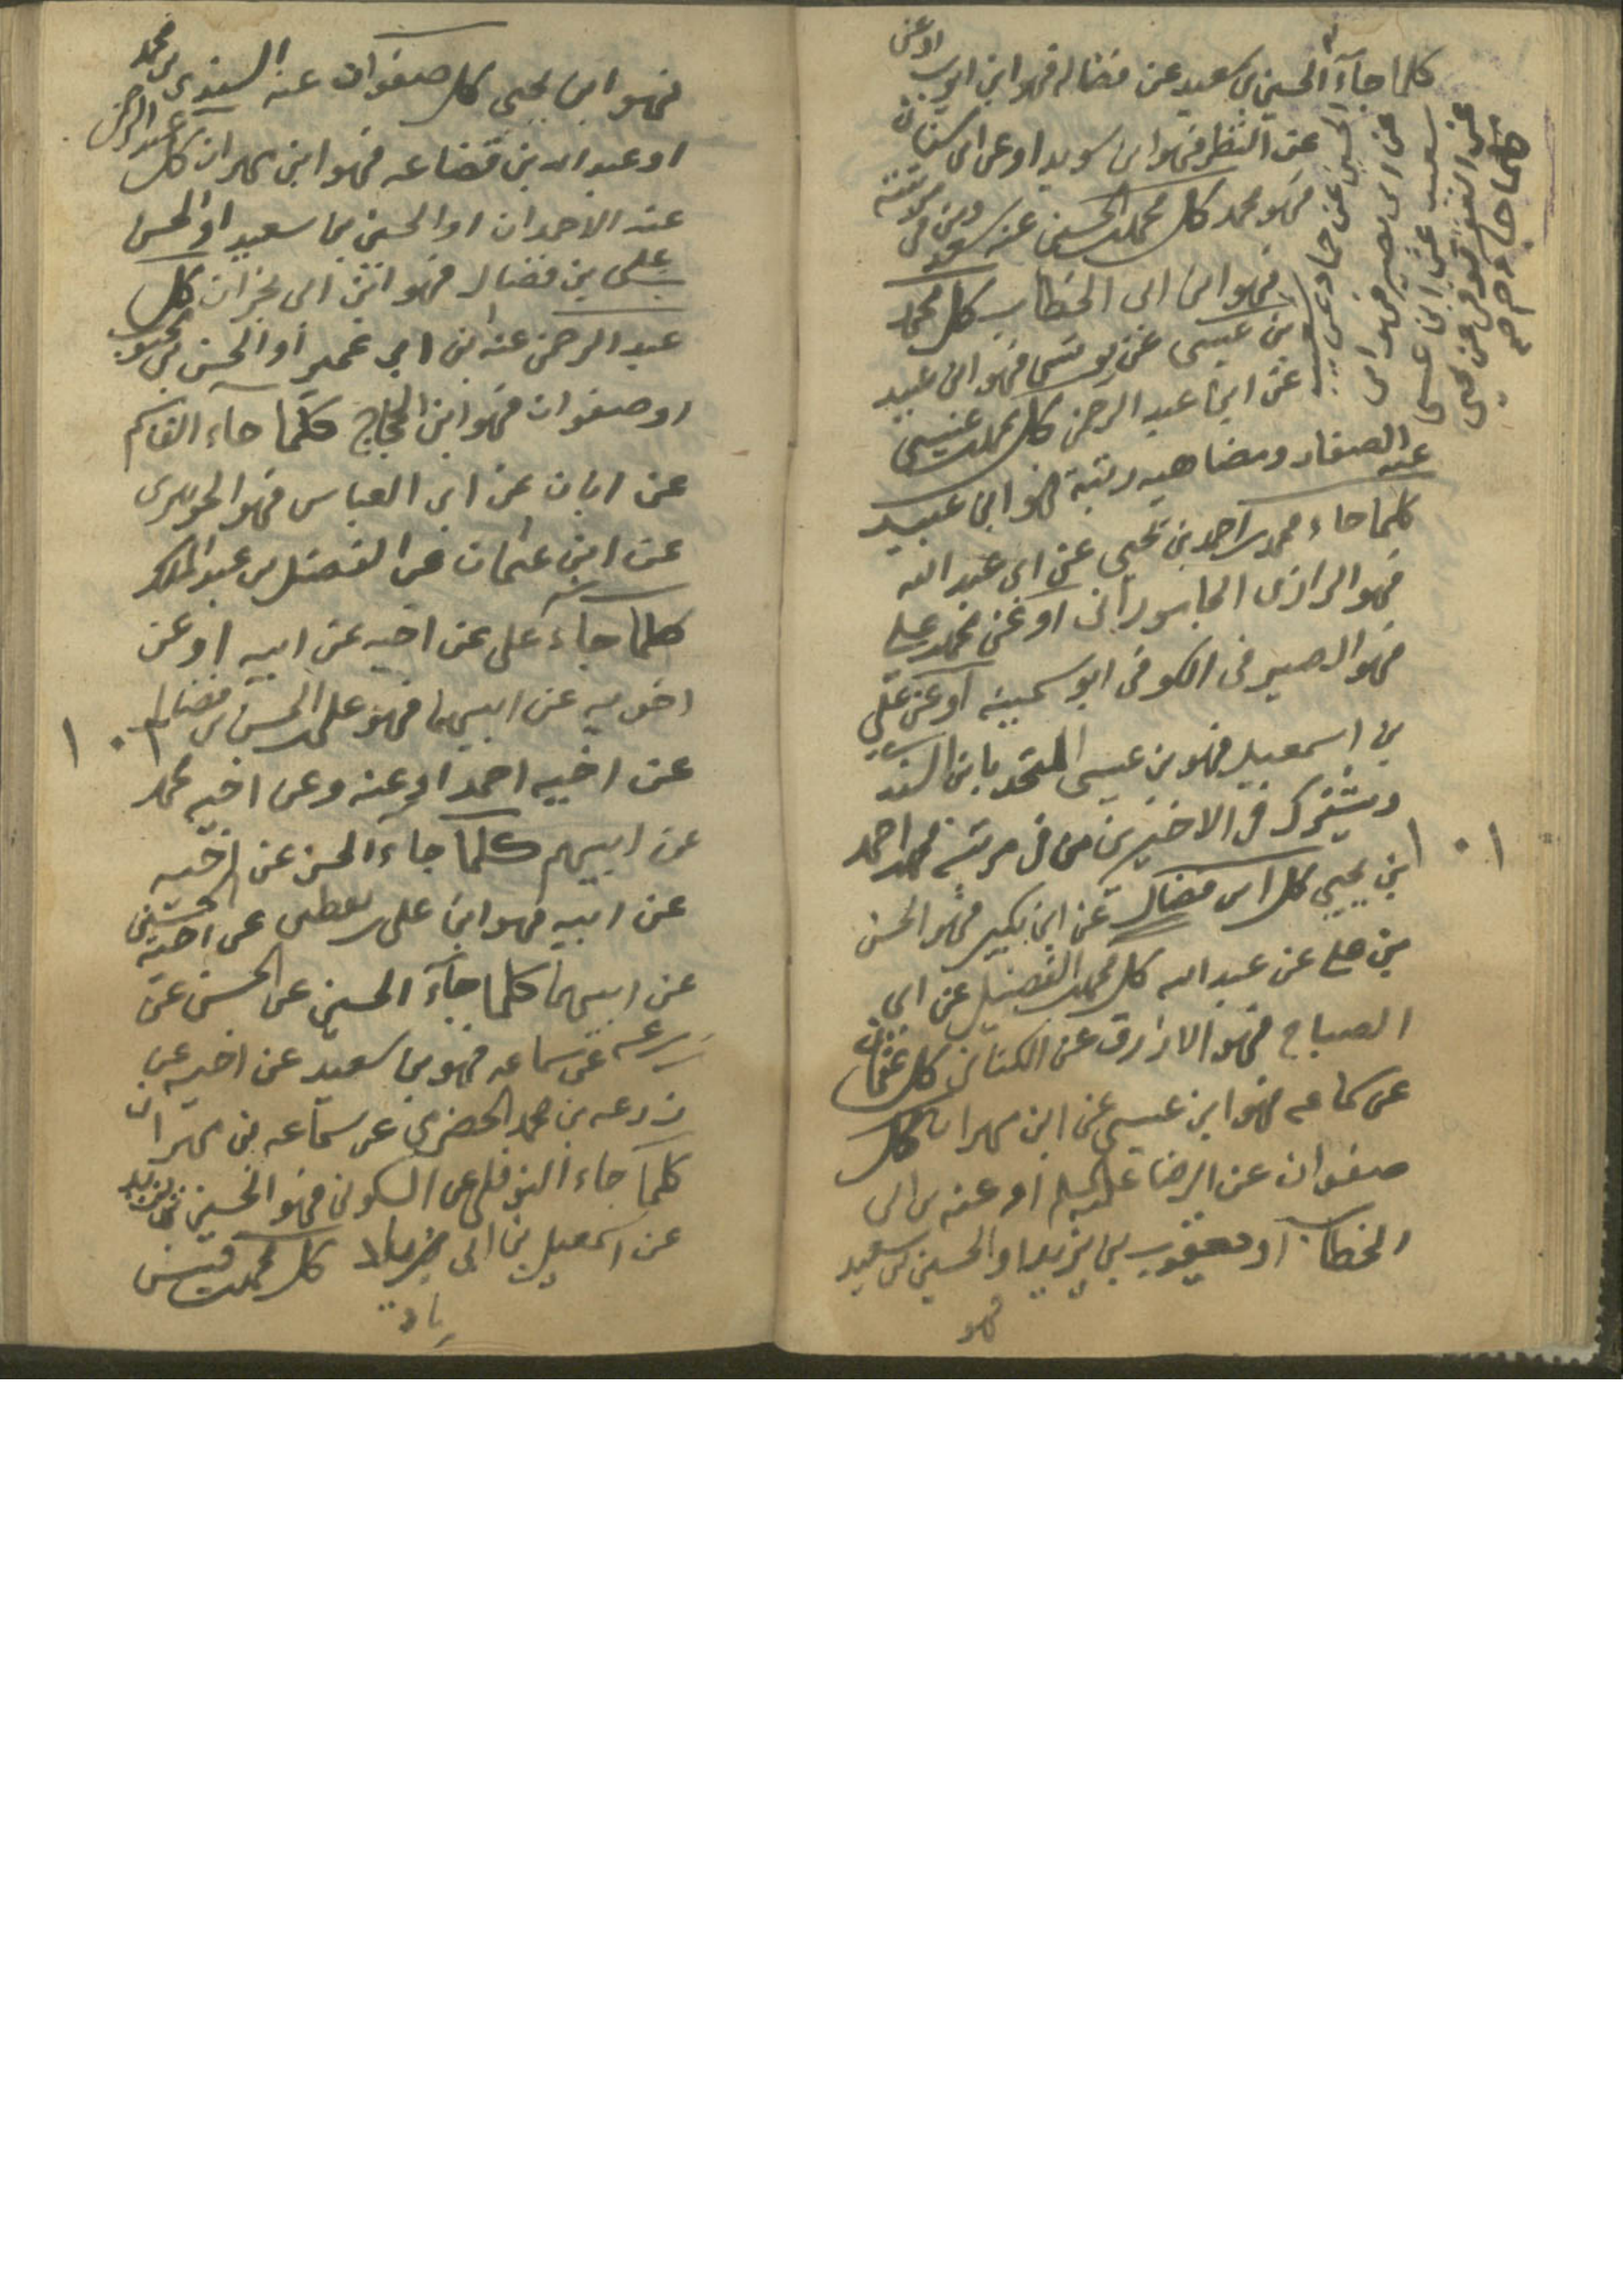 كلما جآء الحسين بن سعيد عن فضاله فهو ابن ايوب او عن
عن النظر فهو ابن سويد او عن ابن سنان
فهو محمد كل محمد بن الحسين عنه سعد ومن فى مرتبته
فهو ابن ابى الخطاب كل محمد
بن عيسى عن يونس فهو ابن عبيد
عن ابن عبد الرحمن كل محمد بن عيسى
عنه الصفار ومضاهيه رتبة فهو ابن عبيد
كلما جاء محمد بن احمد بن يحيى عن ابى عبد الله
فهو الرازى الجامورانى او عن محمد بن على
فهو الصيرفى الكوفى ابو سمينه او عن على
بن اسمعيل فهو بن عيسى المتحد بابن السندى
ويشترك فى الاخيرين من فى مرتبه محمد بن احمد
بن يحيى كل ابن فضال عن ابن بكير فهو الحسن
بن على عن عبد الله كل محمد بن الفضيل عن ابى
الصباح فهو الازرق عن الكنانى كل عثمان
عن سماعه فهو ابن عيسى عن ابن مهران كل
صفوان عن الرضا عليه السلم او عنه بن ابى
الخطاب او يعقوب بن يزيد او الحسين بن سعيد
فهو
كلما جاء
عن النضر عن يحيى
سعيد عن ابن عيسى
عن ابى بصير فهو ابن
الحسين عن حماد عن شعيب
١٠١
فهو ابن يحيى كل صفوان عنه السندى بن محمد
او عبد الله بن قضاعه فهو ابن مهران كل عبد الرحمن
عنه الاحمدان او الحسين بن سعيد او الحسن
على بن فضال فهو ابن ابى نجران كل
عبد الرحمن عنه ابن ابى عمير او الحسن بن محبوب
او صفوان فهو ابن الحجاج كلما جاء القاسم
عن ابان عن ابى العباس فهو الجوهرى
عن ابن عثمان عن الفضل بن عبد الملك
كلما جآء على عن اخيه عن ابيه او عن
اخويه عن ابيهما فهو على بن الحسن بن فضال
عن اخيه احمد او عنه وعن اخيه محمد
عن ابيهم كلما جاء الحسن عن اخيه
عن ابيه فهو ابن على بن يقطين عن اخيه الحسين
عن ابيهما كلما جآء الحسين عن الحسن عن
زرعه عن سماعه فهو بن سعيد عن اخيه عن
زرعه بن محمد الحضرمى عن سماعه بن مهران
كلما جاء النوفلى عن السكونى فهو الحسين بن يزيد
عن اسمعيل بن ابى زياد كل محمد بن قيس
زياد